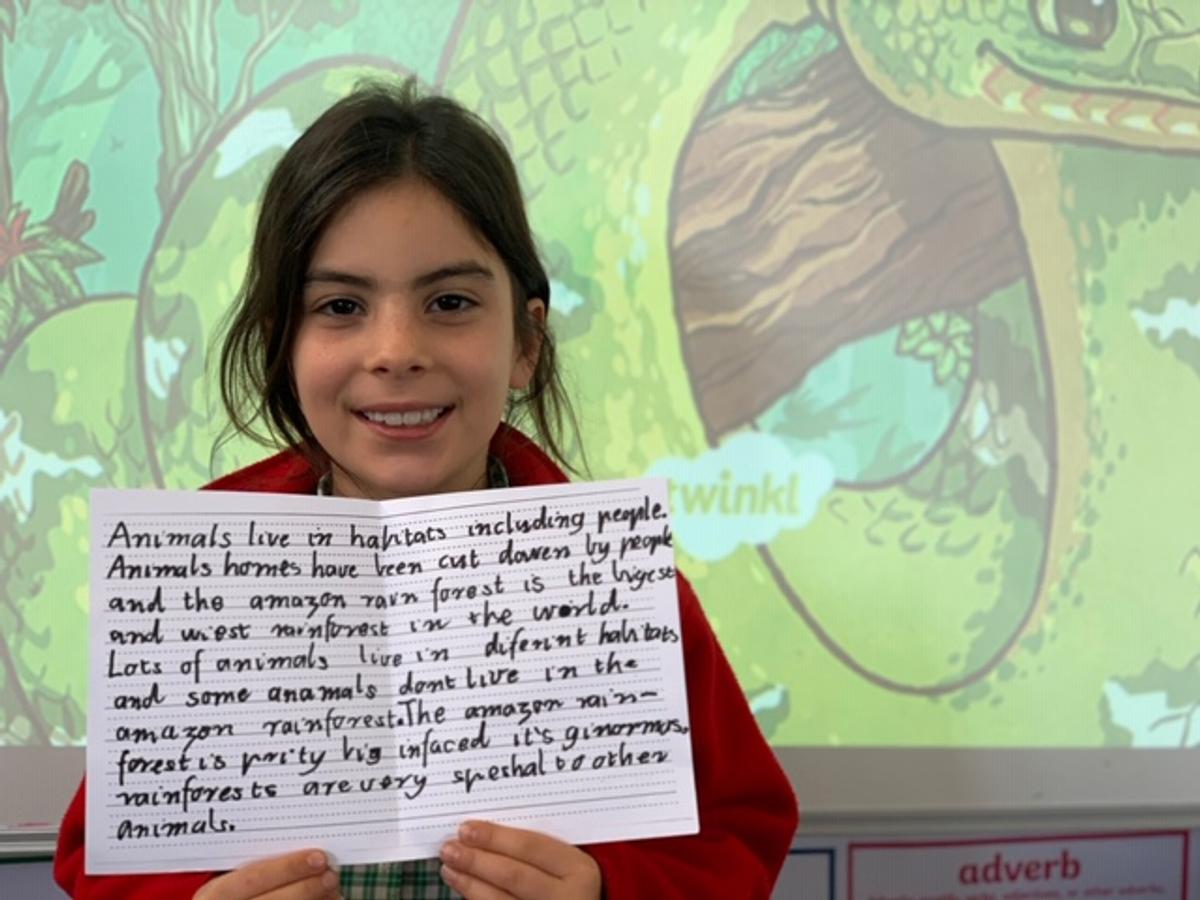 Animals live in habitats including people.
Animals homes have been cut dowen by people
and the amazon rain forest is the bigest
and wiest rainforest in the world.
Lots of animals live in diferint habitats
and some anamals dont live in the
amazon rainforest. The amazon rain-
forest is prity big infaced it's ginormus.
rainforests are very speshal to other
animals.
twinkl
adverb